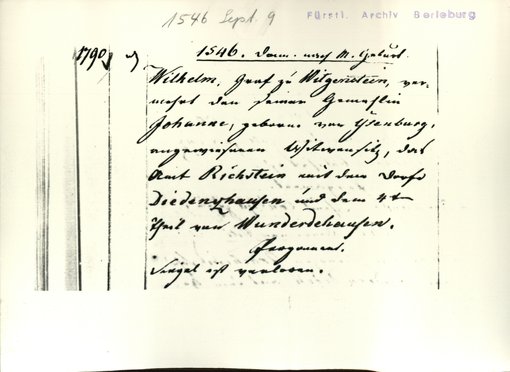 1546 Sept. 9
Fürstl. Archiv Berleburg
1790
1546. Donn. nach M. Geburt.
Wilhelm, Graf zu Witgenstein, ver-
mehrt den seiner Gemahlin
Johanne, geborene von Ysenburg,
angewiesenen Witwensitz, das
Amt Richstein mit dem Dorfe
Diedenshausen und dem 4t
Theil von Wunderdehausen.
Pergament.
Siegel ist verloren.